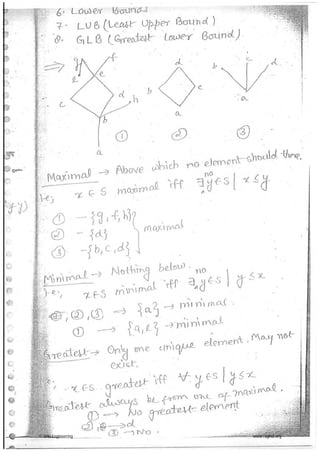 6. Lower Bounds
7. LUB (Least Upper Bound)
8. GLB (Greatest Lower Bound)
g f
e
c d
b h
a
①
d
b c
a
②
b c d
a
③
Maximal → Above which no element should there.
i.e; x ∈ S maximal iff no ∃ y ∈ S | x ≤ y
① - {g, f, h}
② - {d}
③ - {b, c, d}
maximal
Minimal → Nothing below.
i.e; x ∈ S minimal iff no ∃ y ∈ S | y ≤ x
②, ③ → {a} → minimal
① → {a, l} → minimal
Greatest → Only one unique element. May not
exist.
x ∈ S greatest iff ∀ y ∈ S | y ≤ x
Greatest always be from one of maximal.
① → No greatest element
② → d
③ → No.